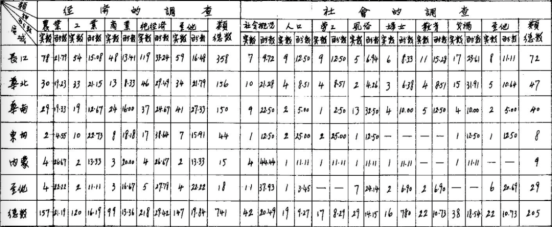 經濟的調查 社會的調查
農業 工業 商業 純經濟 其他 總計 社會概況 人口 勞工 風俗 鄉土 教育 其他 總計
實數 百分數 實數 百分數 實數 百分數 實數 百分數 實數 百分數
長江 78 21.79 54 15.08 48 13.41 119 33.24 59 16.48 358 7 9.72 9 12.50 9 12.50 5 6.94 6 8.33 11 15.28 17 23.61 8 11.11 72
華北 30 19.23 33 21.15 13 8.33 46 29.49 34 21.79 156 10 21.28 4 8.51 4 8.51 2 4.26 3 6.38 4 8.51 15 31.91 5 10.64 47
華南 29 19.33 19 12.67 24 16.00 37 24.67 41 27.33 150 9 22.50 2 5.00 1 2.50 13 32.50 4 10.00 5 12.50 4 10.00 2 5.00 40
東北 2 4.55 10 22.73 8 18.18 17 38.64 7 15.91 44 1 12.50 2 25.00 2 25.00 1 12.50 — — — — 1 12.50 1 12.50 8
內蒙 4 26.67 2 13.33 3 20.00 4 26.67 2 13.33 15 4 44.44 1 11.11 1 11.11 1 11.11 1 11.11 — — 1 11.11 — — 9
其他 4 22.22 2 11.11 3 16.67 5 27.78 4 22.22 18 11 37.93 1 3.45 — — 7 24.14 2 6.90 2 6.90 — — 6 20.69 29
總數 157 21.19 120 16.19 99 13.36 218 29.42 147 19.84 741 42 20.49 19 9.27 17 8.29 29 14.15 16 7.80 22 10.73 38 18.54 22 10.73 205